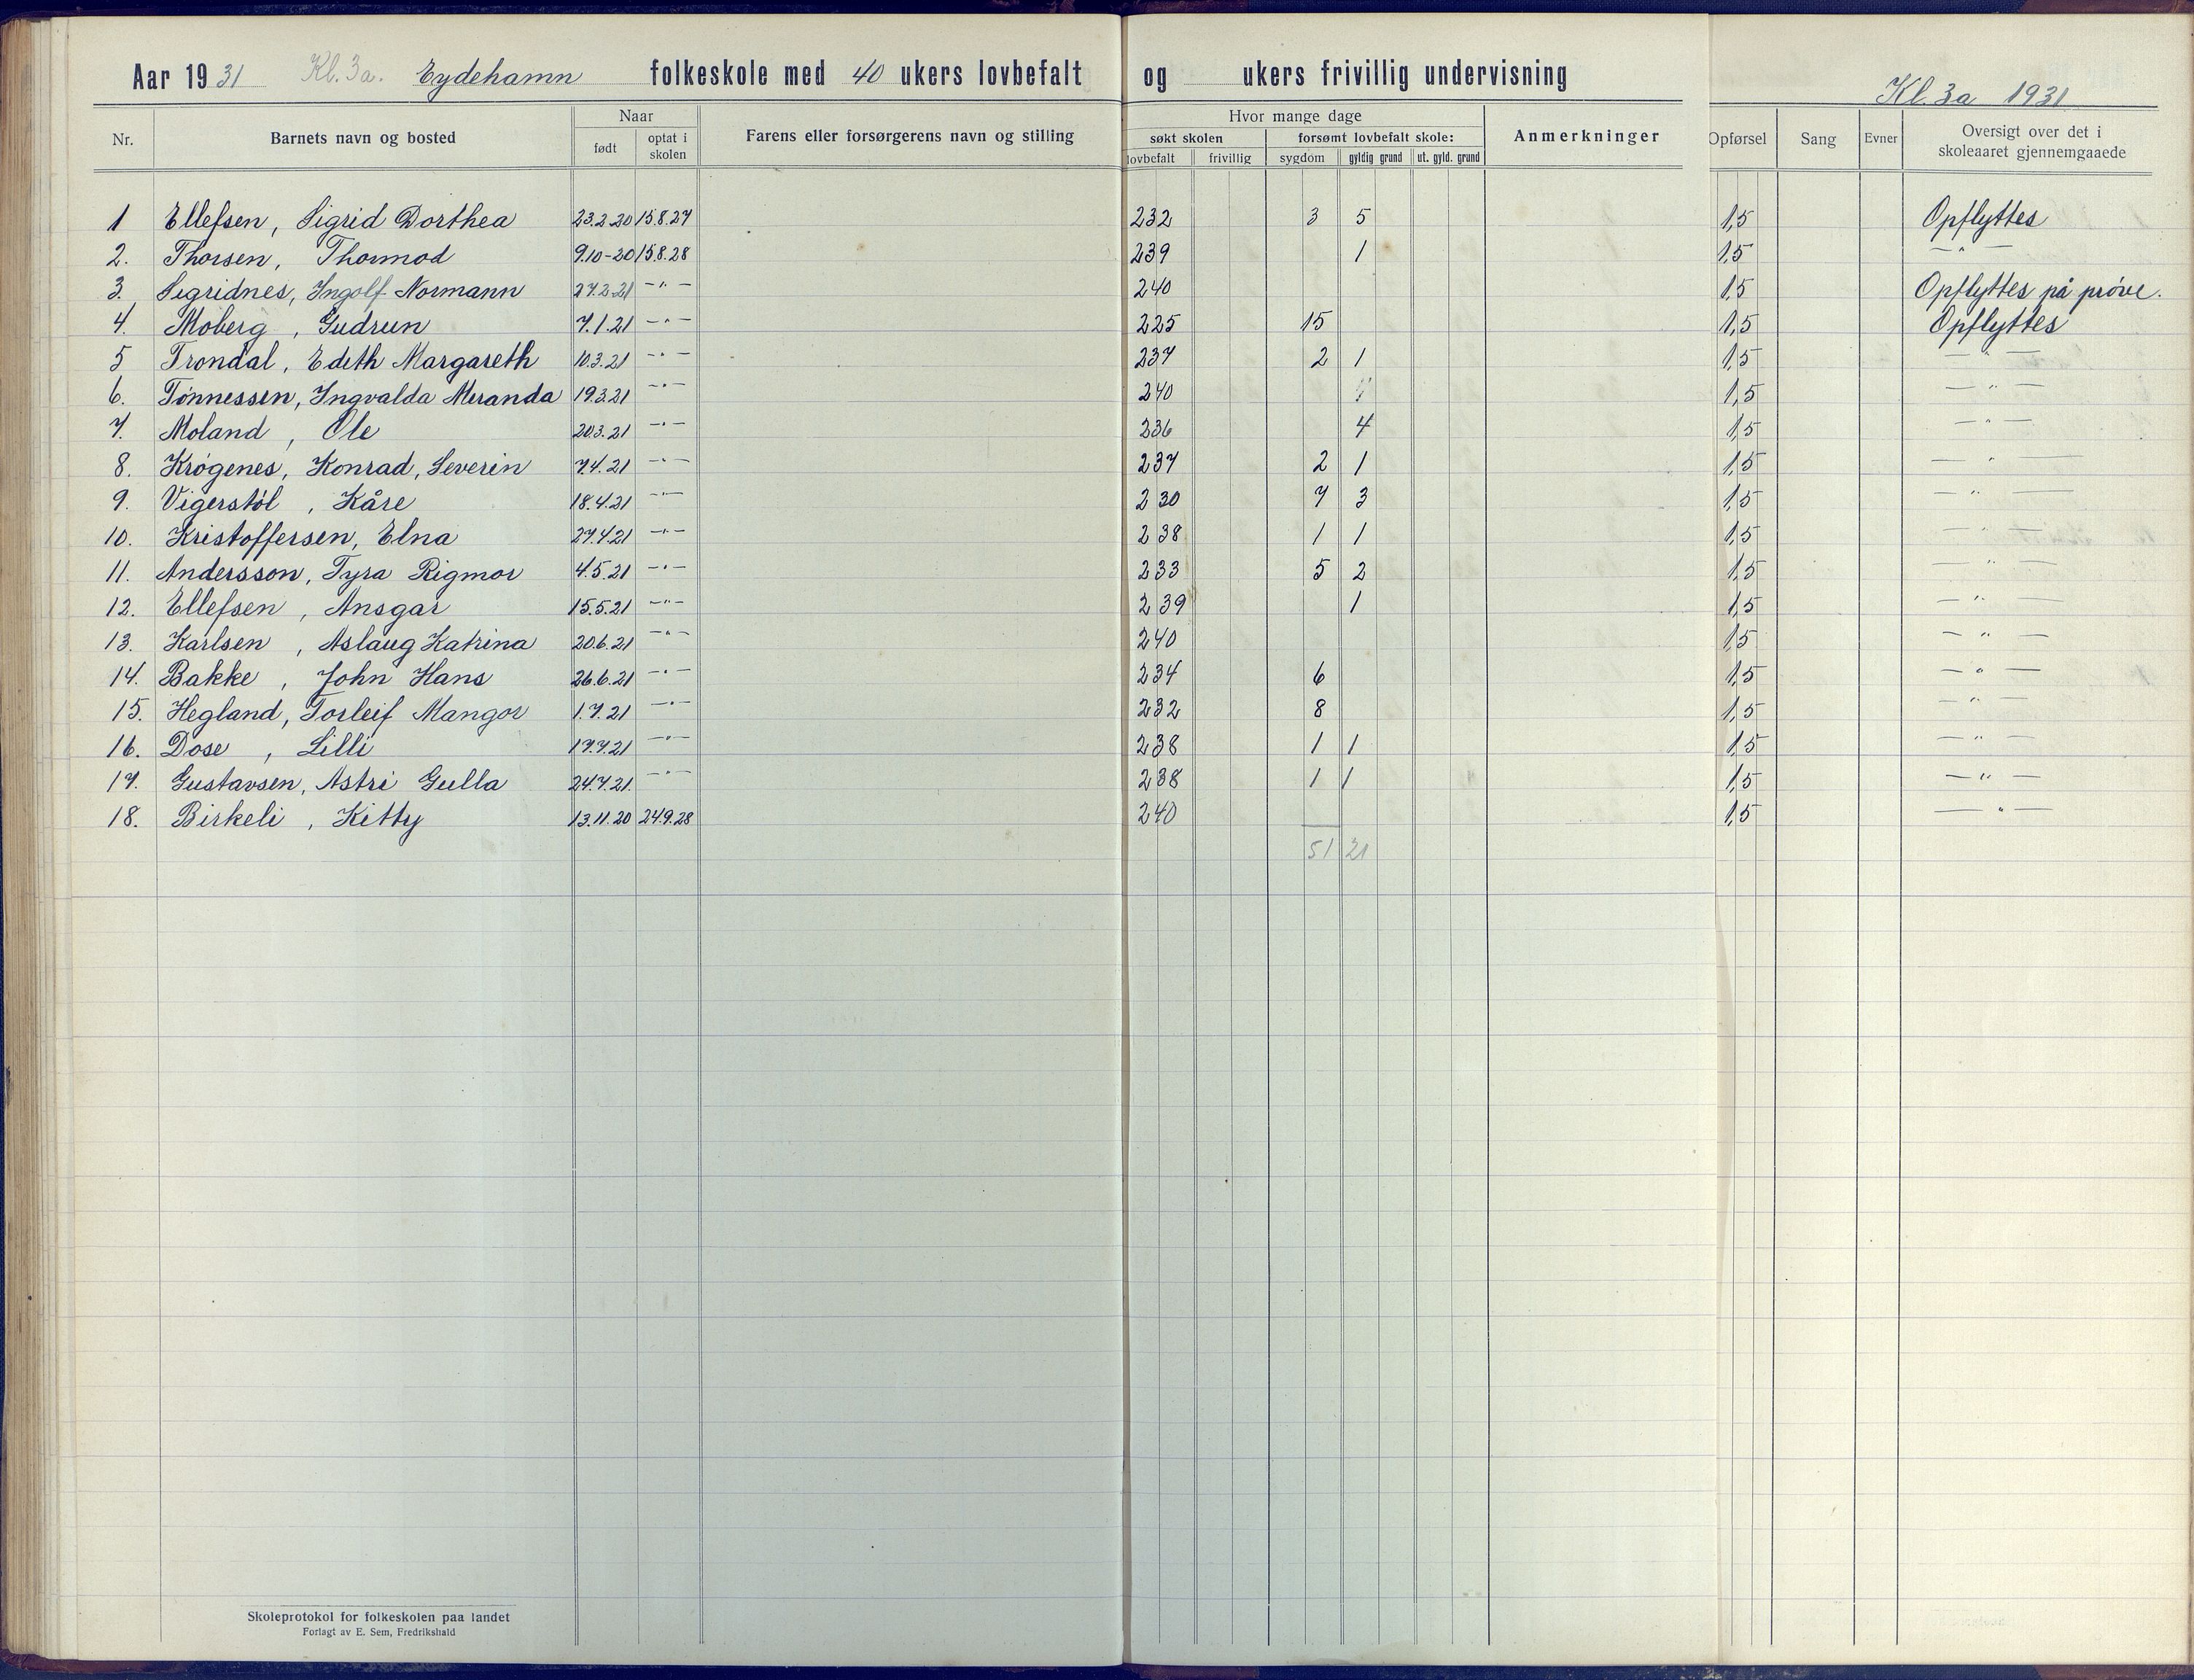 Aar 1931 Kl. 3a. Eydehamn folkeskole med 40 ukers lovbefalt og ukers frivillig undervisning
Kl. 3a 1931
Nr. Barnets navn og bosted Naar født optat i skolen Farens eller forsørgerens navn og stilling Hvor mange dage søkt skolen lovbefalt frivillig forsømt lovbefalt skole: sygdom gyldig grund ut. gyld. grund Anmerkninger Opførsel Sang Evner Oversigt over det i skoleaaret gjennemgaaede
1 Ellefsen, Sigrid Dorthea 23.2.20 15.8.27 232 3 5 1,5 Opflyttes
2. Thorsen, Thormod 9.10-20 15.8.28 239 1 1,5 —"—
3. Sigridnes, Ingolf Normann 27.2.21 —"— 240 1,5 Opflyttes på prøve.
4. Moberg, Gudrun 7.1.21 —"— 225 15 1,5 Opflyttes
5 Trondal, Edith Margareth 10.3.21 —"— 237 2 1 1,5 —"—
6. Tønnessen, Ingvalda Miranda 19.3.21 —"— 240 1,5 —"—
7. Moland, Ole 20.3.21 —"— 236 4 1,5 —"—
8. Krøgenes, Konrad, Severin 7.4.21 —"— 237 2 1 1,5 —"—
9. Vigerstøl, Kåre 18.4.21 —"— 230 7 3 1,5 —"—
10. Kristoffersen, Elna 27.4.21 —"— 238 1 1 1,5 —"—
11. Andersson, Tyra Rigmor 4.5.21 —"— 233 5 2 1,5 —"—
12. Ellefsen, Ansgar 15.5.21 —"— 239 1 1,5 —"—
13. Karlsen, Aslaug Katrina 20.6.21 —"— 240 1,5 —"—
14. Bakke, John Hans 26.6.21 —"— 234 6 1,5 —"—
15. Hegland, Torleif Mangor 1.7.21 —"— 232 8 1,5 —"—
16. Dose, Lilli 17.7.21 —"— 238 1 1 1,5 —"—
17. Gustavsen, Astri Gulla 24.7.21. —"— 238 1 1 1,5 —"—
18. Birkeli, Kitty 13.11.20 24.9.28 240 1,5 —"—
51 21
Skoleprotokol for folkeskolen paa landet
Forlagt av E. Sem, Fredrikshald